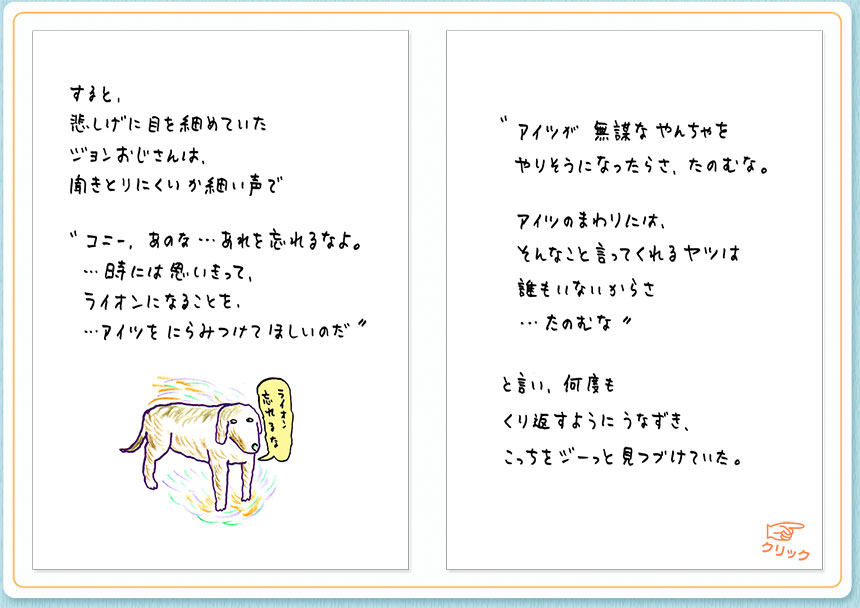 すると、
悲しげに目を細めていた
ジョンおじさんは、
聞きとりにくいか細い声で
〝コニー、あのな…あれを忘れるなよ。
…時には思いきって、
ライオンになることを、
…アイツをにらみつけてほしいのだ〞
ライオン
忘れるな
〝アイツが 無謀な やんちゃを
やりそうになったらさ、たのむな。
アイツのまわりには、
そんなこと言ってくれるヤツは
誰もいないからさ
…たのむな〞
と言い、何度も
くり返すように うなずき、
こっちをジーっと見つづけていた。
クリック